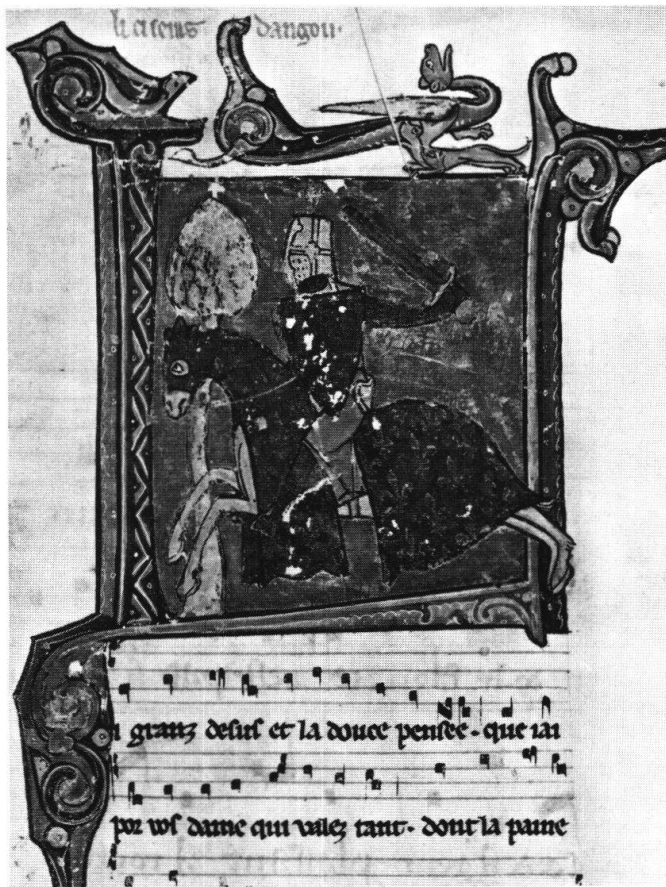 li cuens dangou·
i granz desirs et la douce pensee · que iai
por vos dame qui valez tant · dont la paine